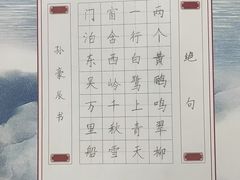 绝句
两个黄鹂鸣翠柳
一行白鹭上青天
窗含西岭千秋雪
门泊东吴万里船
孙豪辰书